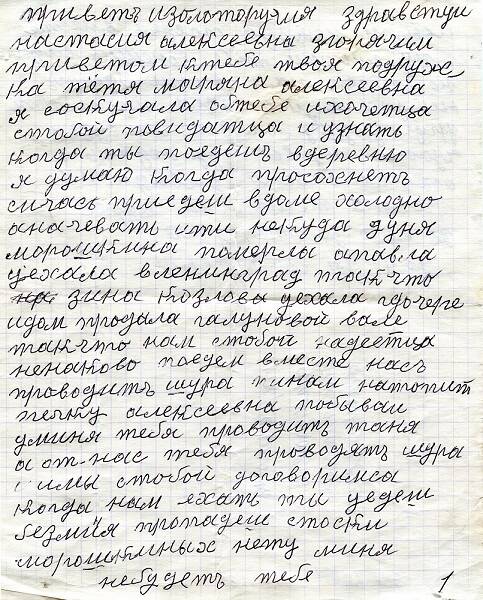 приветъ изолоторучия здравствуи
настасия алексеевна згорячим
приветом ктебе твоя подруж
ка тётя марьяна алексеевна
я соскучала обтебе ихочетца
стобой повидатца и узнать
когда ты поедешъ вдеревню
я думаю когда просохнетъ
сичасъ приедеш вдоме холодно
аначевать ити некуда дуня
морошкина померла апавла
уехала вленинград такчто
зина козлова уехала кдочере
идом продала галуновой вале
такчто нам стобой надеетца
ненаково поедем вместе насъ
проводитъ шура инам натопит
печку алексеевна побываи
уминя тебя проводитъ таня
а от нас тебя проводятъ шура
имы стобой договоримса
когда нам ехать ты уедеш
безмия пропадеш стоски
морошкиных нету миня
небудетъ тебе 1